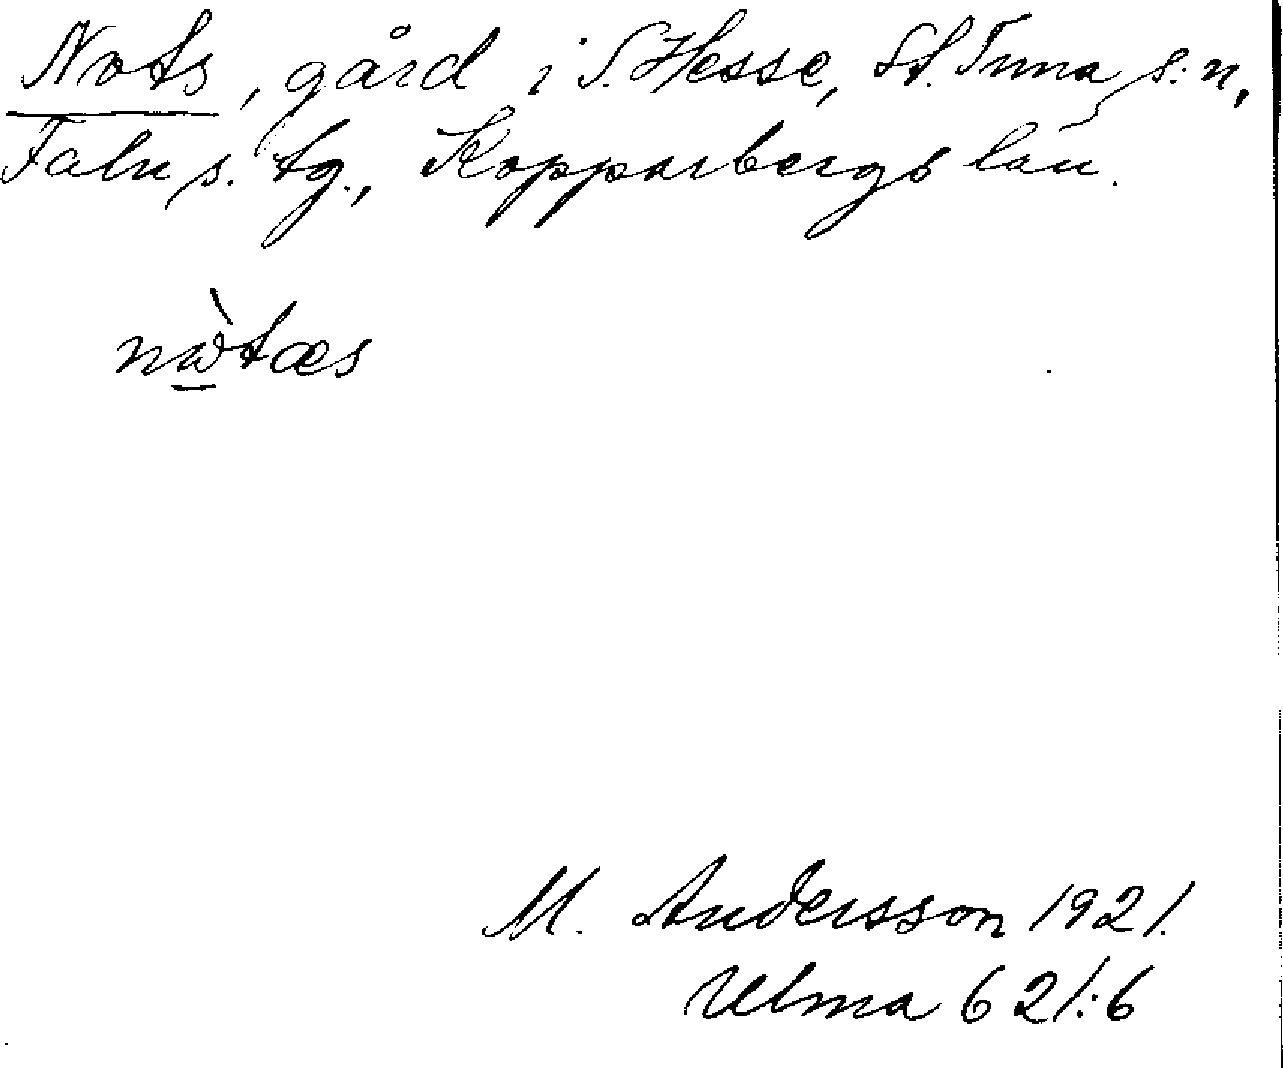 Nots, gård i S. Hesse, St. Tuna s:n,
Falu s. tg., Kopparbergs län.
nὼ̱tæs
M. Andersson 1921.
Ulma 621:6